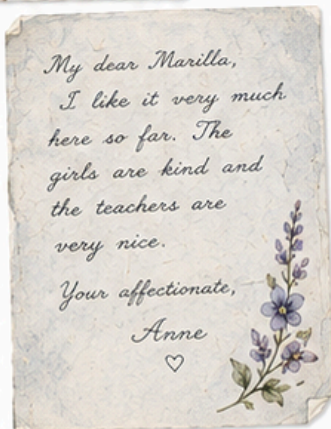 My dear Marilla,
I like it very much
here so far. The
girls are kind and
the teachers are
very nice.
Your affectionate,
Anne
♡